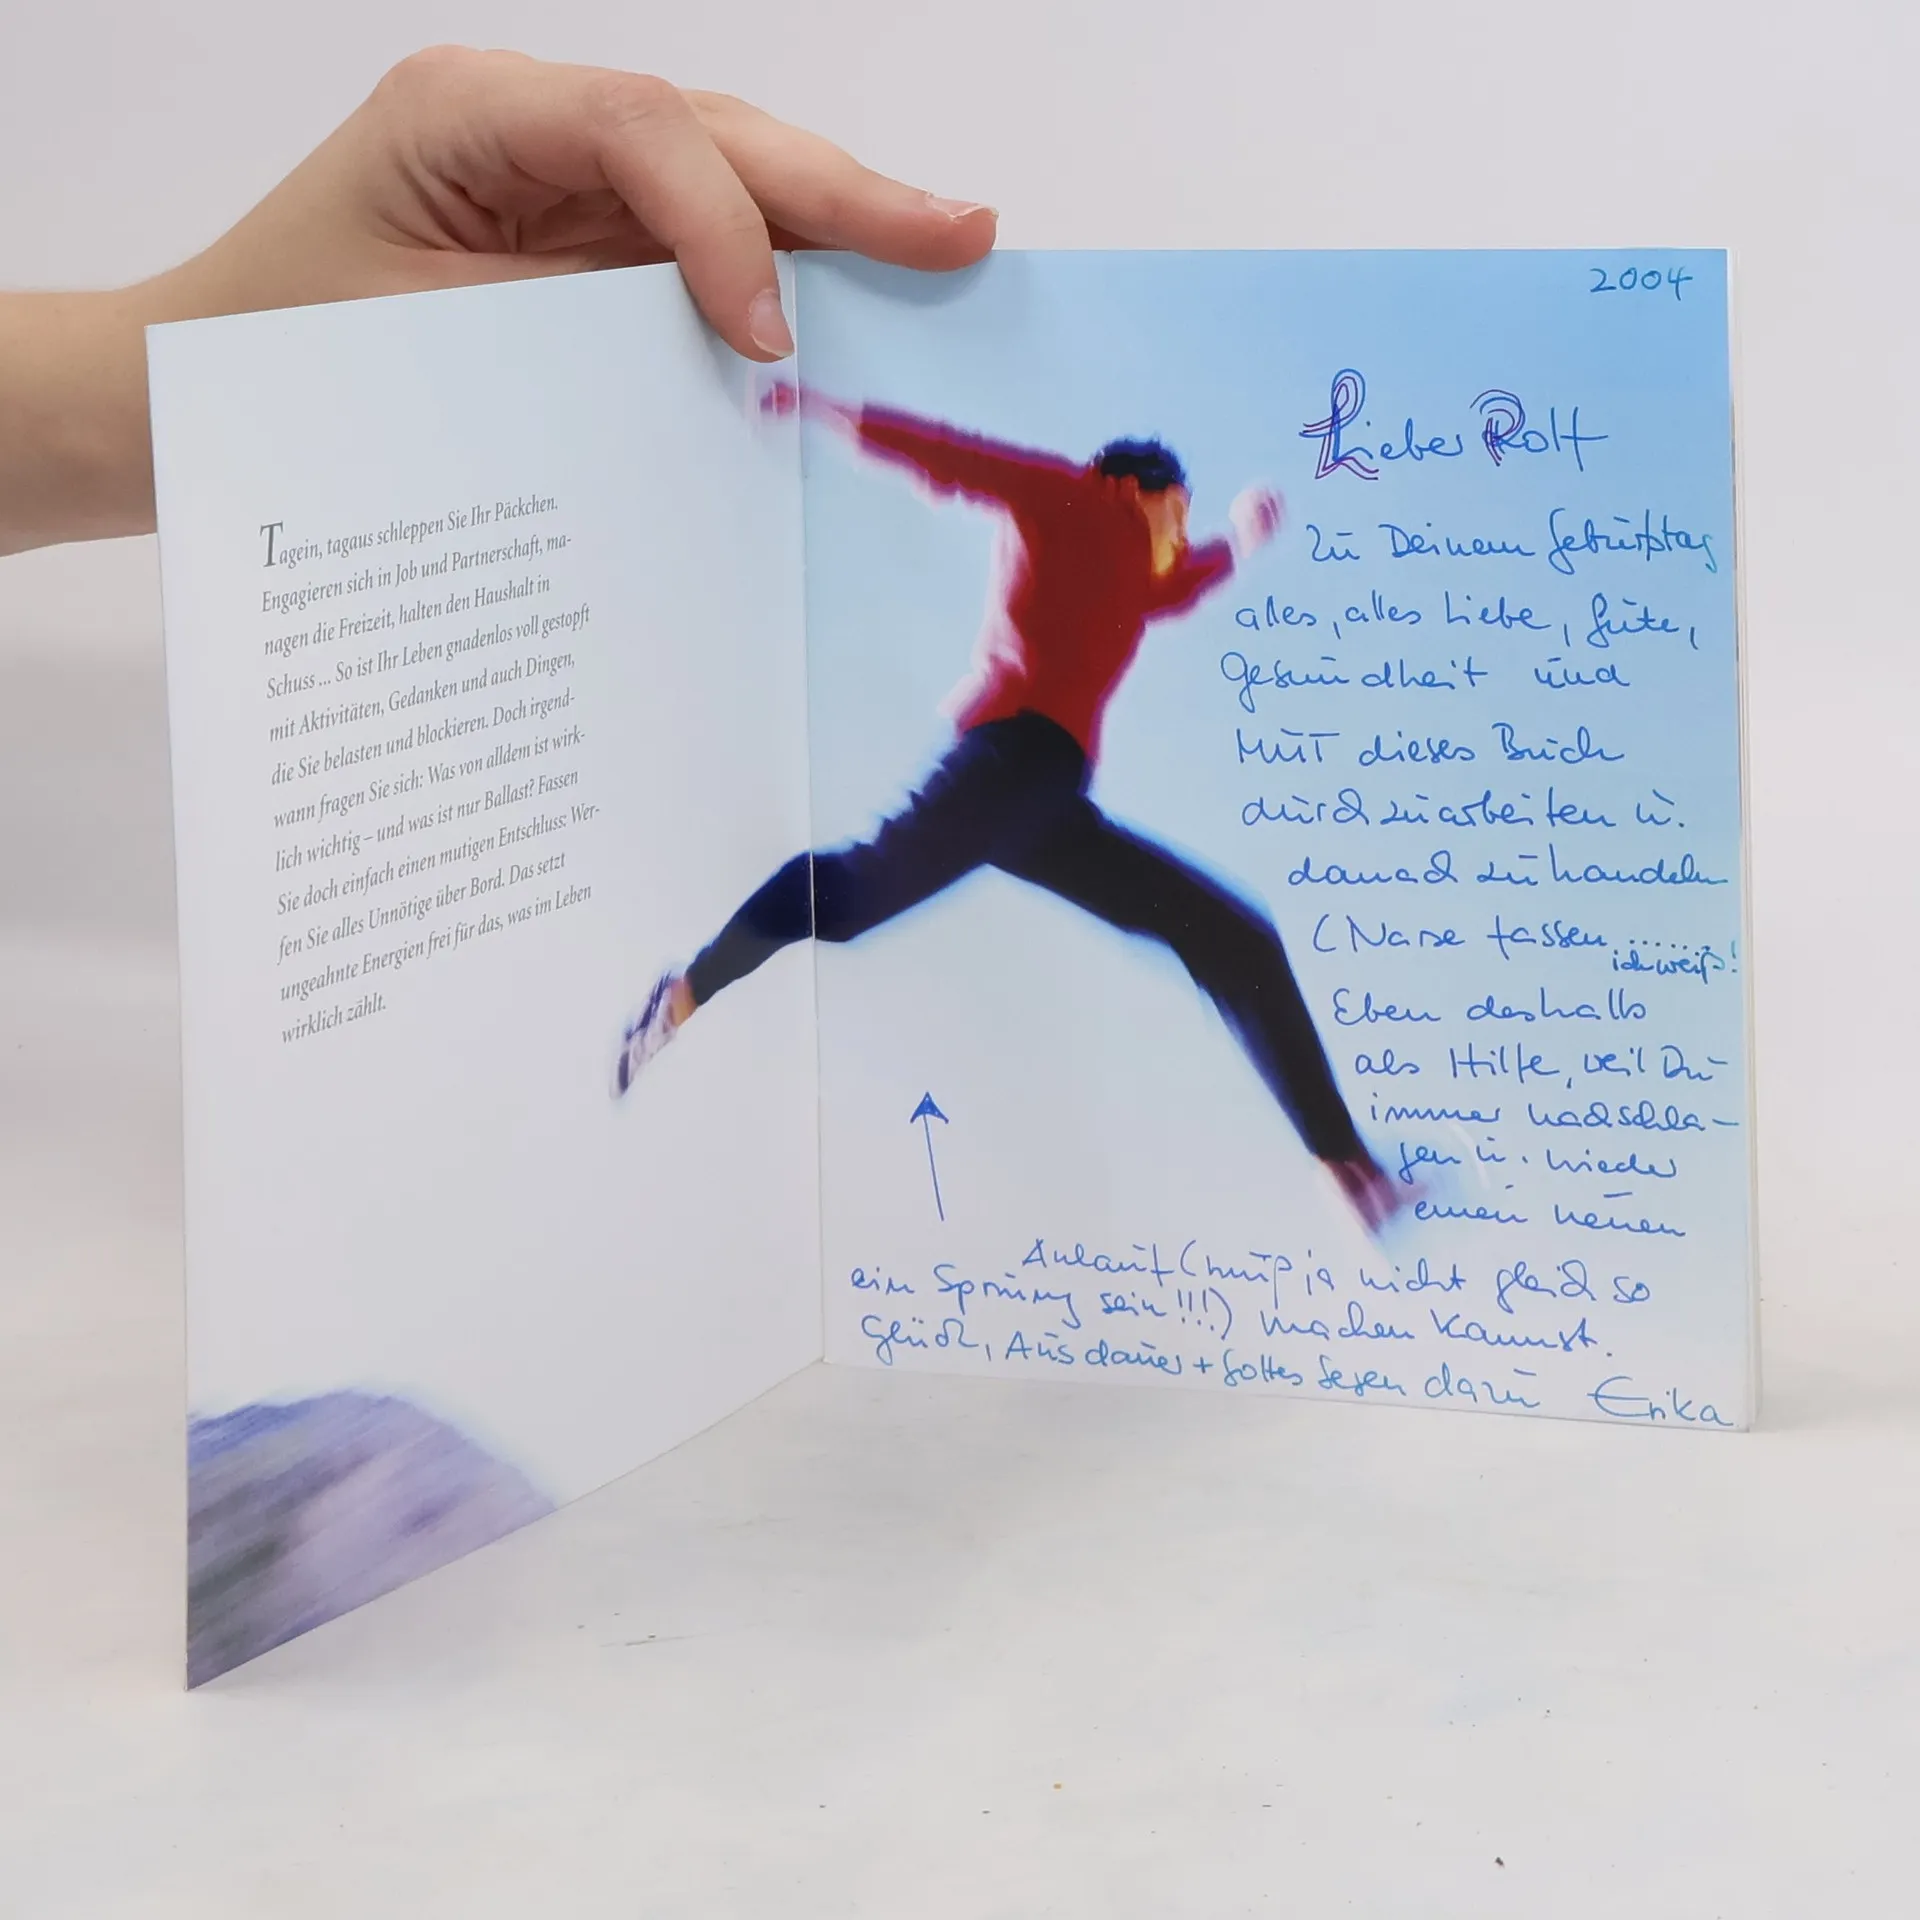 Tagein, tagaus schleppen Sie Ihr Päckchen.
Engagieren sich in Job und Partnerschaft, ma-
nagen die Freizeit, halten den Haushalt in
Schuss ... So ist Ihr Leben gnadenlos voll gestopft
mit Aktivitäten, Gedanken und auch Dingen,
die Sie belasten und blockieren. Doch irgend-
wann fragen Sie sich: Was von alldem ist wirk-
lich wichtig – und was ist nur Ballast? Fassen
Sie doch einfach einen mutigen Entschluss: Wer-
fen Sie alles Unnötige über Bord. Das setzt
ungeahnte Energien frei für das, was im Leben
wirklich zählt.
2004
Lieber Rolf
Zu Deinem Geburtstag
alles, alles Liebe, Gute,
Gesundheit und
MUT dieses Buch
durchzuarbeiten u.
danach zu handeln
(Nase fassen .......
ich weiß!
Eben deshalb
als Hilfe, weil Du
immer nachschla-
gen u. wieder
einen neuen
Anlauf (muß ja nicht gleich so
ein Sprung sein!!!) machen kannst.
Glück, Ausdauer + Gottes Segen dazu Erika